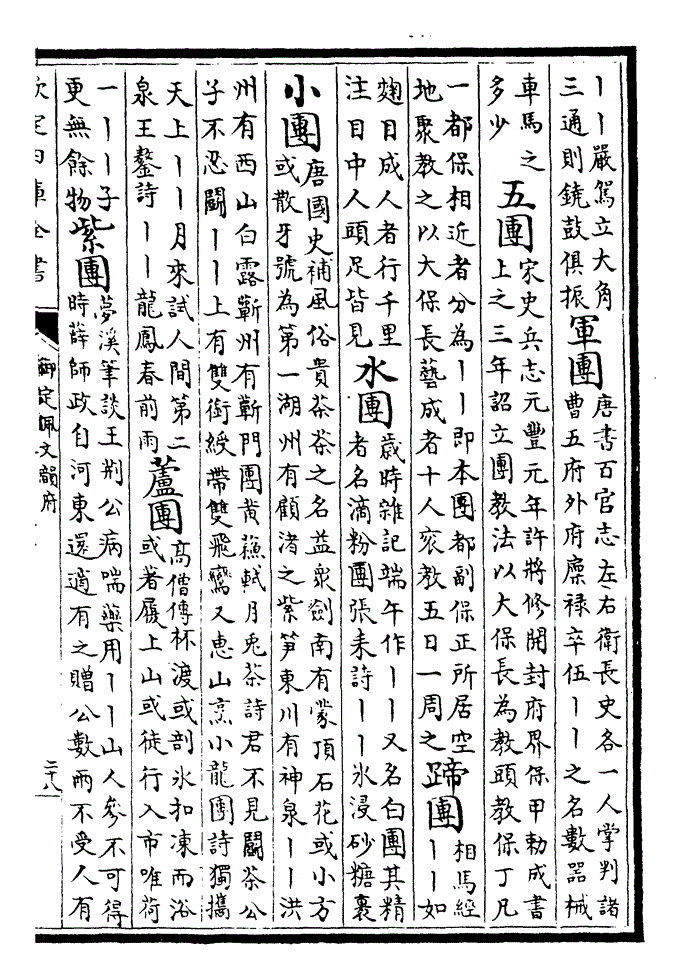 丨丨嚴駕立大角
三通則鐃鼓俱振
軍團
唐書百官志左右衛長史各一人掌判諸
曹五府外府廩禄卒伍丨丨之名數器械
車馬之
多少
五團
宋史兵志元豐元年許將修開封府界保甲勅成書
上之三年詔立團教法以大保長為教頭教保丁凡
一都保相近者分為丨丨即本團都副保正所居空
地聚教之以大保長藝成者十人衮教五日一周之
蹄團
相馬經
丨丨如
麴目成人者行千里
注目中人頭足皆見
水團
歲時雜記端午作丨丨又名白團其精
者名滴粉團張耒詩丨丨氷浸砂糖裹
小團
唐國史補風俗貴茶茶之名益衆劍南有蒙頂石花或小方
或散牙號為第一湖州有顧渚之紫笋東川有神泉丨丨洪
州有西山白露蘄州有蘄門團黄蘓軾月兎茶詩君不見鬬茶公
子不忍鬬丨丨上有雙銜綬帶雙飛鸞又惠山烹小龍團詩獨攜
天上丨丨月來試人間第二
泉王鏊詩丨丨龍鳳春前雨
蘆團
高僧傳杯渡或剖氷扣凍而浴
或著屐上山或徒行入市唯荷
一丨丨子
更無餘物
紫團
夢溪筆談王荆公病喘藥用丨丨山人參不可得
時薛師政自河東還適有之贈公數兩不受人有
欽定四庫全書
御定佩文韻府
二十八